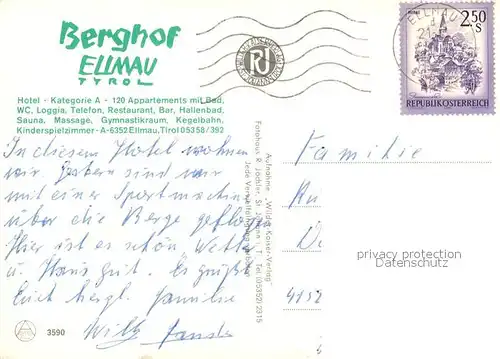 Berghof
ELLMAU
TYROL
Hotel - Kategorie A - 120 Appartements mit Bad,
WC, Loggia, Telefon, Restaurant, Bar, Hallenbad,
Sauna, Massage, Gymnastikraum, Kegelbahn,
Kinderspielzimmer - A-6352 Ellmau, Tirol 05358/392
In diesem Hotel wohnen
wir. Gestern sind wir
mit einer Sportmaschine
über die Berge geflogen
Hier ist es schön Wetter
u. Haus gut. Es grüßt
Euch herzl. Familie
Willy
3590
Aufnahme „Wilder Kaiser-Verlag"
Fotohaus R. Jöchler, St. Johann i. T., Tel. (05352) 2315
Jede Vervielfältigung verboten
ELLMAU
2.50
S
REPUBLIK ÖSTERREICH
Familie
privacy protection
Datenschutz